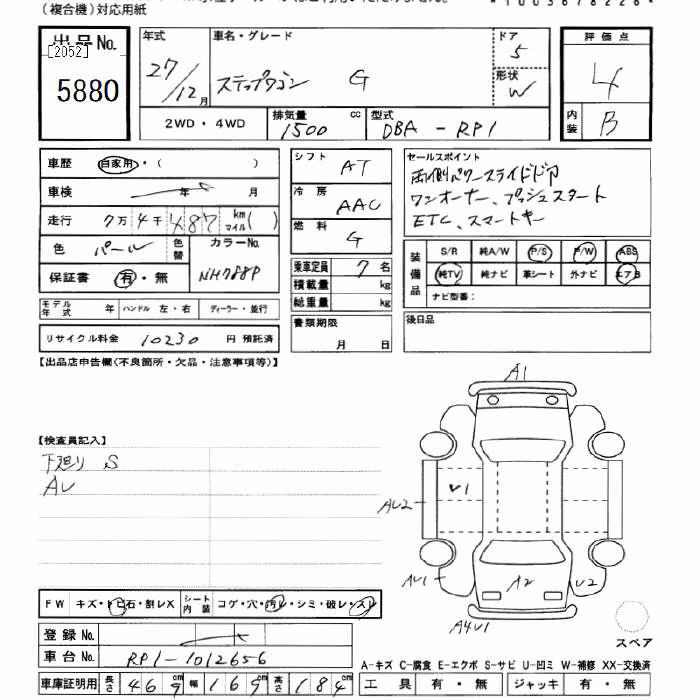 (複合機)対応用紙
出品No.
[2052]
5880
年式 27/12月
車名・グレード ステップワゴン G
ドア 5
形状 W
評価点 4
内装 B
2WD・4WD
排気量 1500 cc
型式 DBA-RP1
車歴 自家用・( )
車検 年 月
走行 7万4千487 km マイル( )
色 パール 色替
カラーNo. NH788P
保証書 有・無
モデル年式 年 ハンドル 左・右 ディーラー・並行
リサイクル料金 10230 円 預託済
シフト AT
冷房 AAC
燃料 G
乗車定員 7名
積載量 kg
総重量 kg
書類期限 月 日
セールスポイント
両側パワースライドドア
ワンオーナー、プッシュスタート
ETC、スマートキー
装備品
S/R 純A/W P/S P/W ABS
純TV 純ナビ 革シート 外ナビ エアB
ナビ型番:
後日品
【出品店申告欄(不良箇所・欠品・注意事項等)】
【検査員記入】
下廻り S
AU
A1
U1
AU2
AU1
A2
U2
A4U1
スペア
FW キズ・トビ石・割レX シート内装 コゲ・穴・汚レ・シミ・破レ・スレ
登録No.
車台No. RP1-1012656
車庫証明用 長さ 469 幅 169 高さ 184
A-キズ C-腐食 E-エクボ S-サビ U-凹ミ W-補修 XX-交換済
工具 有・無 ジャッキ 有・無